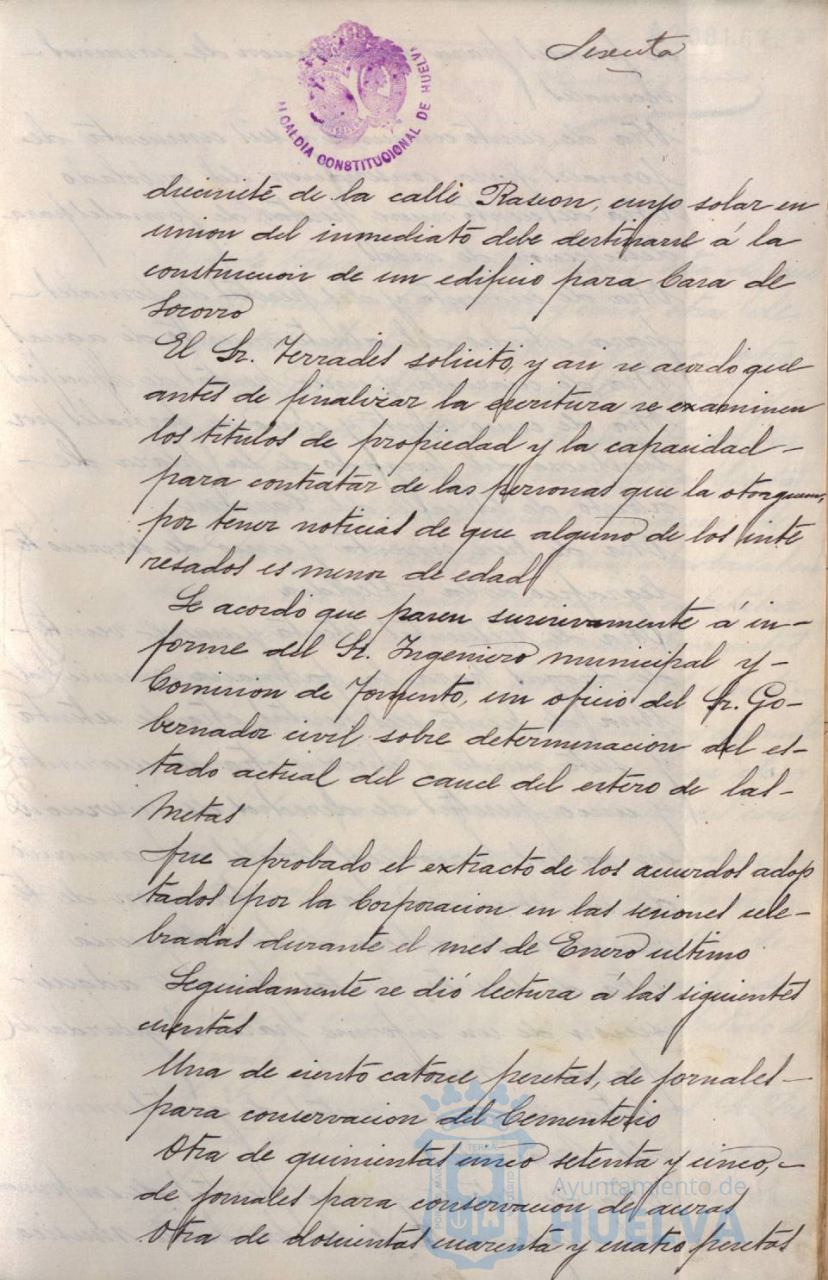 Sesenta
ALCALDIA CONSTITUCIONAL DE HUELVA
diecisiete de la calle Rascon, cuyo solar en
union del inmediato debe destinarse á la
construccion de un edificio para Casa de
Socorro
El Sr. Terrades solicitó, y asi se acordó que
antes de finalizar la escritura se examinen
los titulos de propiedad y la capacidad –
para contratar de las personas que la otorguen,
por tener noticias de que alguno de los inte
resados es menor de edad
Se acordó que pasen sucesivamente á in–
forme del Sr. Ingeniero municipal y –
Comision de Fomento, un oficio del Sr. Go–
bernador civil sobre determinacion del es–
tado actual del cauce del estero de las –
Metas
fue aprobado el extracto de los acuerdos adop
tados por la Corporacion en las sesiones cele–
bradas durante el mes de Enero ultimo
Seguidamente se dió lectura á las siguientes
cuentas
Una de ciento catorce pesetas, de jornales –
para conservacion del Cementerio
Otra de quinientas cinco setenta y cinco, –
de jornales para conservacion de aceras
Otra de doscientas cuarenta y cuatro pesetas
Ayuntamiento de
HUELVA